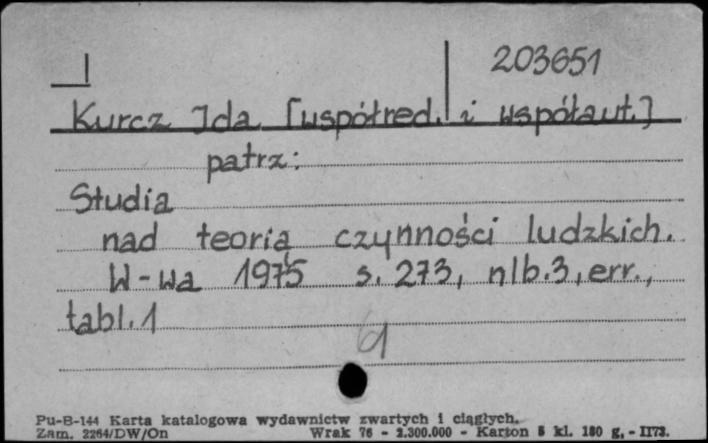 I 203651
Kurcz Ida [współred. i współaut.]
patrz:
Studia
nad teorią czynności ludzkich.
W-wa 1975 s. 273, nlb.3, err.,
tabl.1
Pu-B-144 Karta katalogowa wydawnictw zwartych i ciągłych.
Zam. 2264/DW/On Wrak 76 - 2.300.000 - Karton 5 kl. 180 g, - II73.